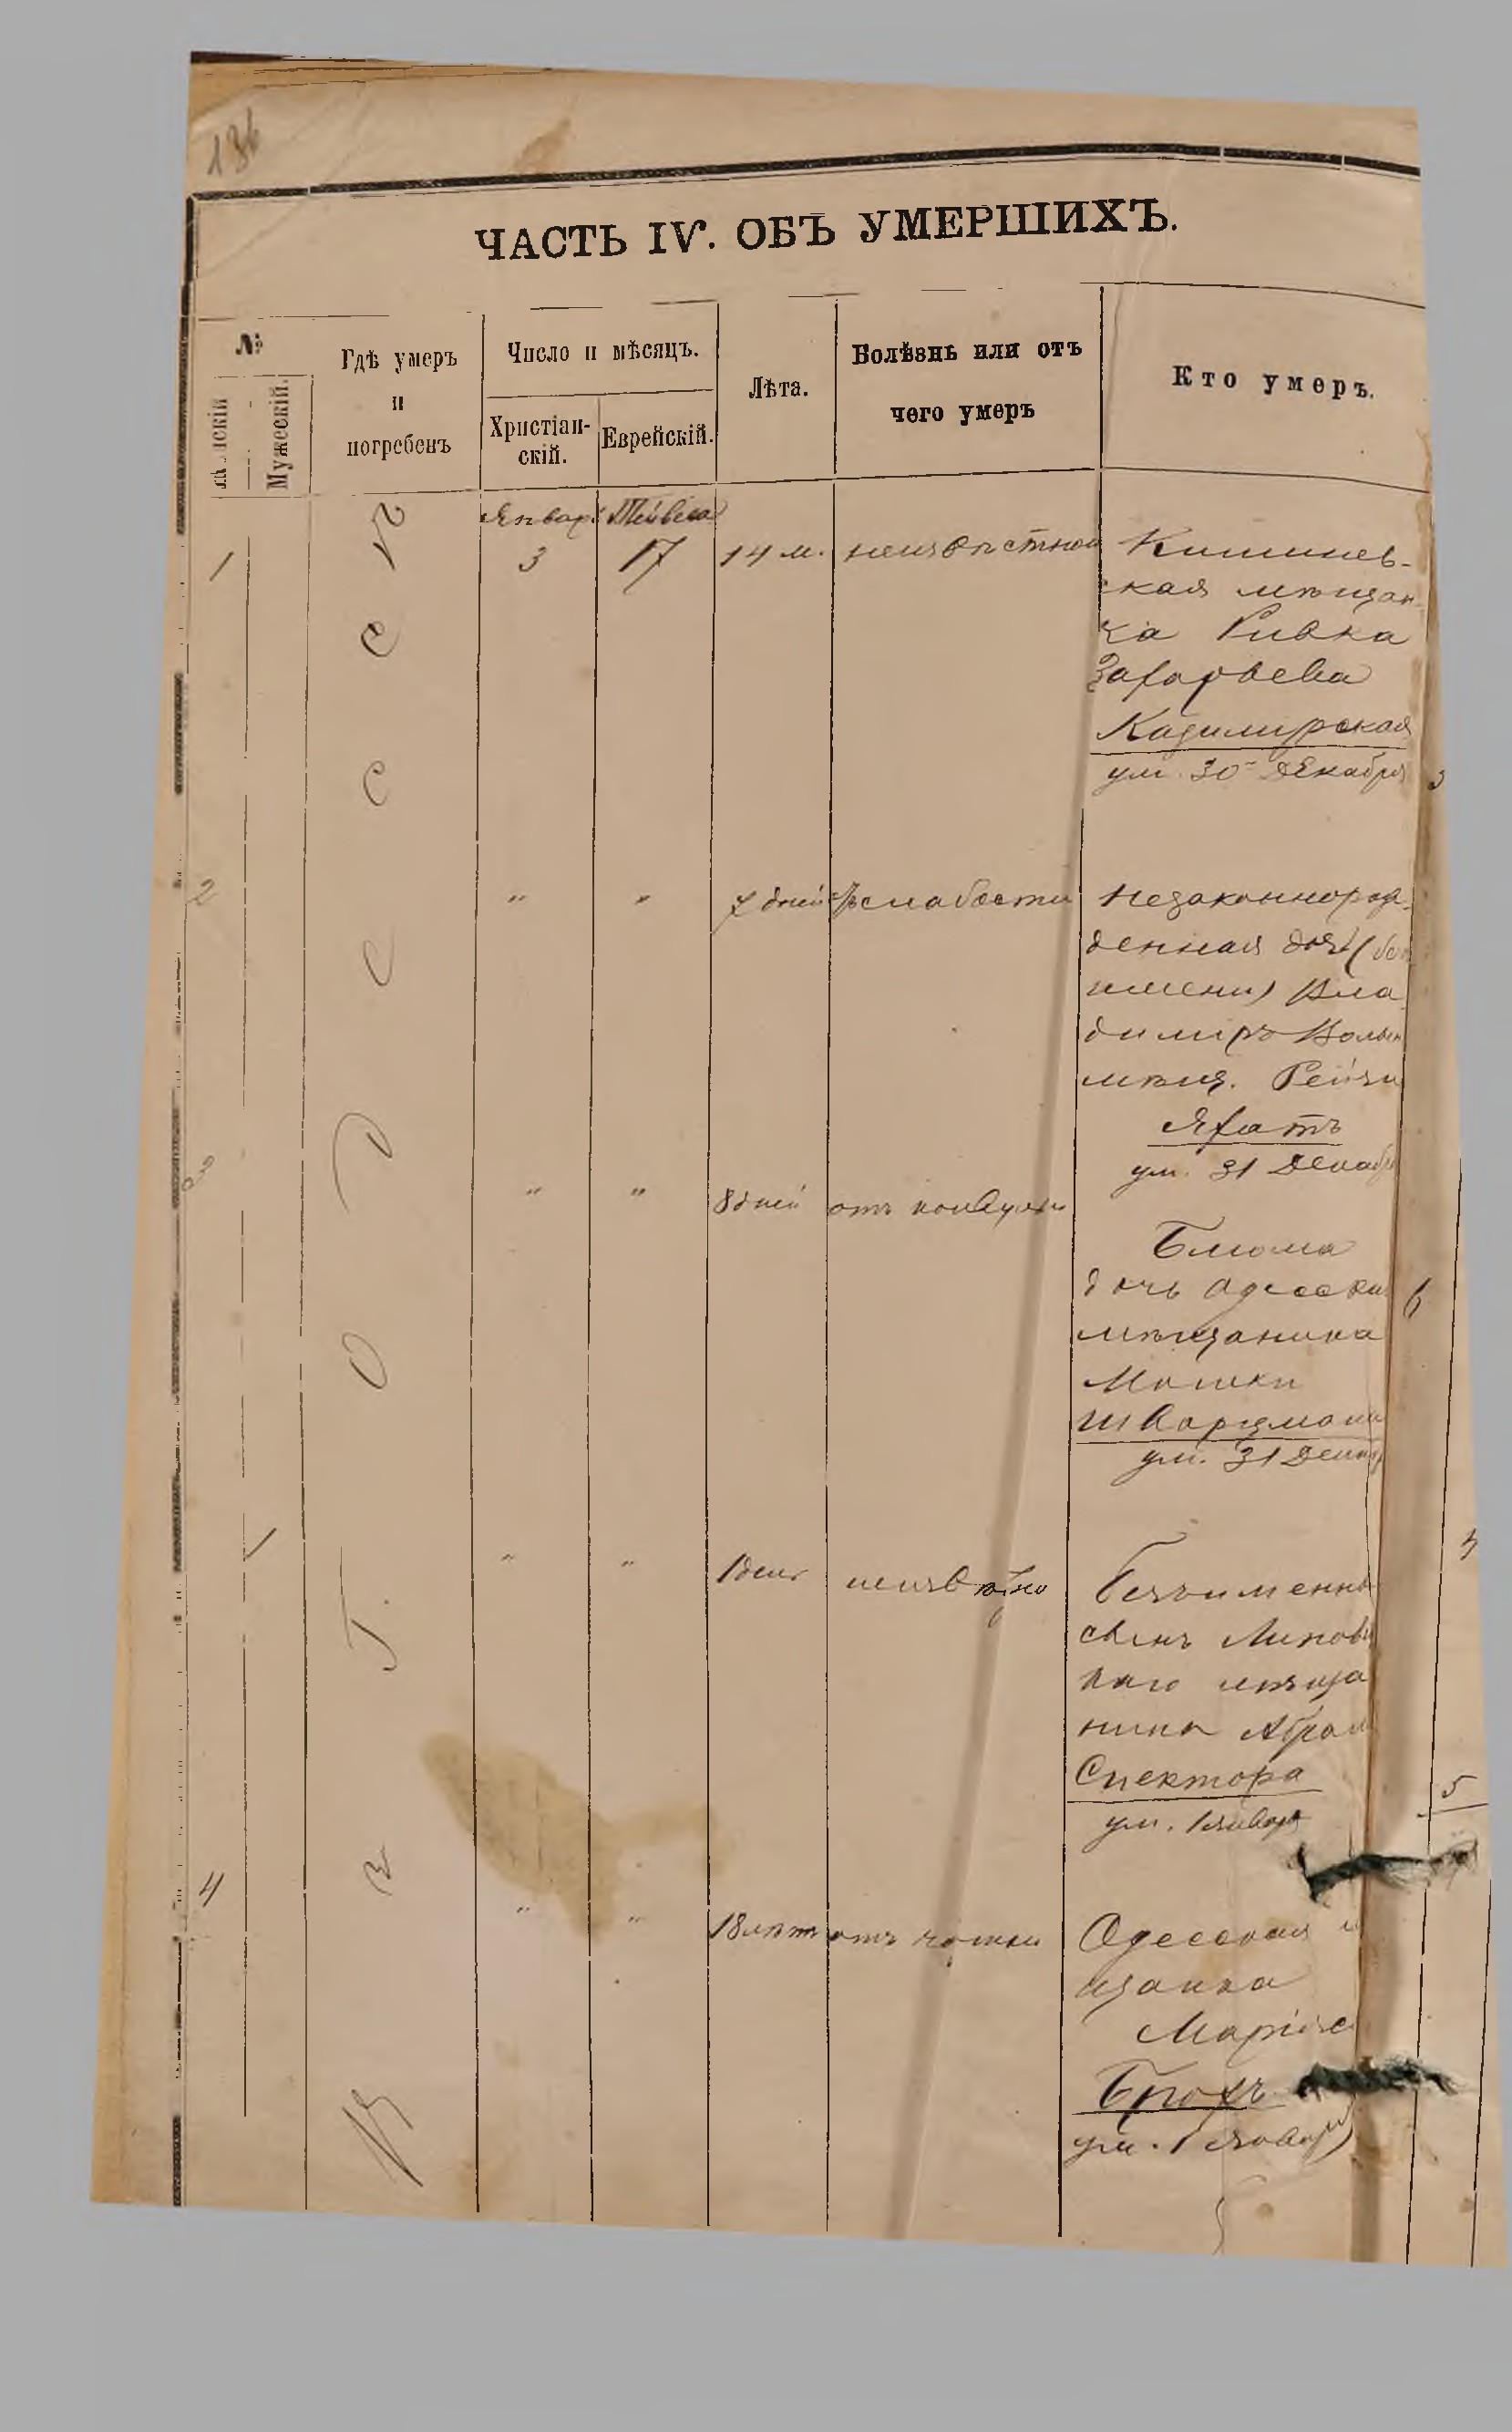 136
ЧАСТЬ IV. ОБЪ УМЕРШИХЪ.
№
Мужескій.
Гдѣ умеръ
и
погребенъ
Число и мѣсяцъ.
Христіан-
скій.
Еврейскій.
Лѣта.
Болѣзнь или отъ
чего умеръ
Кто умеръ.
В Г. О Д Е С С Ѣ
Январ Тейвеса
1 3 17 14 м. неизвѣстной
Кишинев-
ская мѣщан
ка Ривка
Захарьева
Кадимирская
ум. 30 Декабря
2 " " 7 дней слабости
Незаконнорож-
денная дочь (без
имени) Вла
димиръ Волын
мѣщ. Рейзи
Яхатъ
ум. 31 Декабр
3 " " 8 дней отъ
Блюма
дочь Одесска
мѣщанина
Мошки
Шварцмана
ум. 31 Декаб
1 " " 1 день неизвѣстно
Безъименны
сынъ Липове
каго мѣща
нина Абрам
Спектора
ум. 1 января
4 " " 18 лѣтъ отъ
Одесская м
щанка
Марія
Брохъ
ум. 1 января
6
5